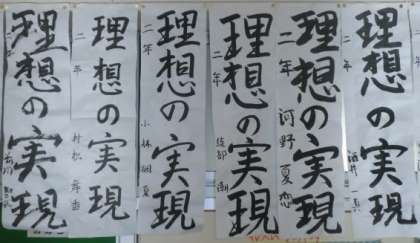 理想の実現
二年 酒井
理想の実現
二年 河野 夏恋
理想の実現
二年 綾部
理想の実現
二年 小林
理想の実現
二年 村松 舞香
理想の実現
二年